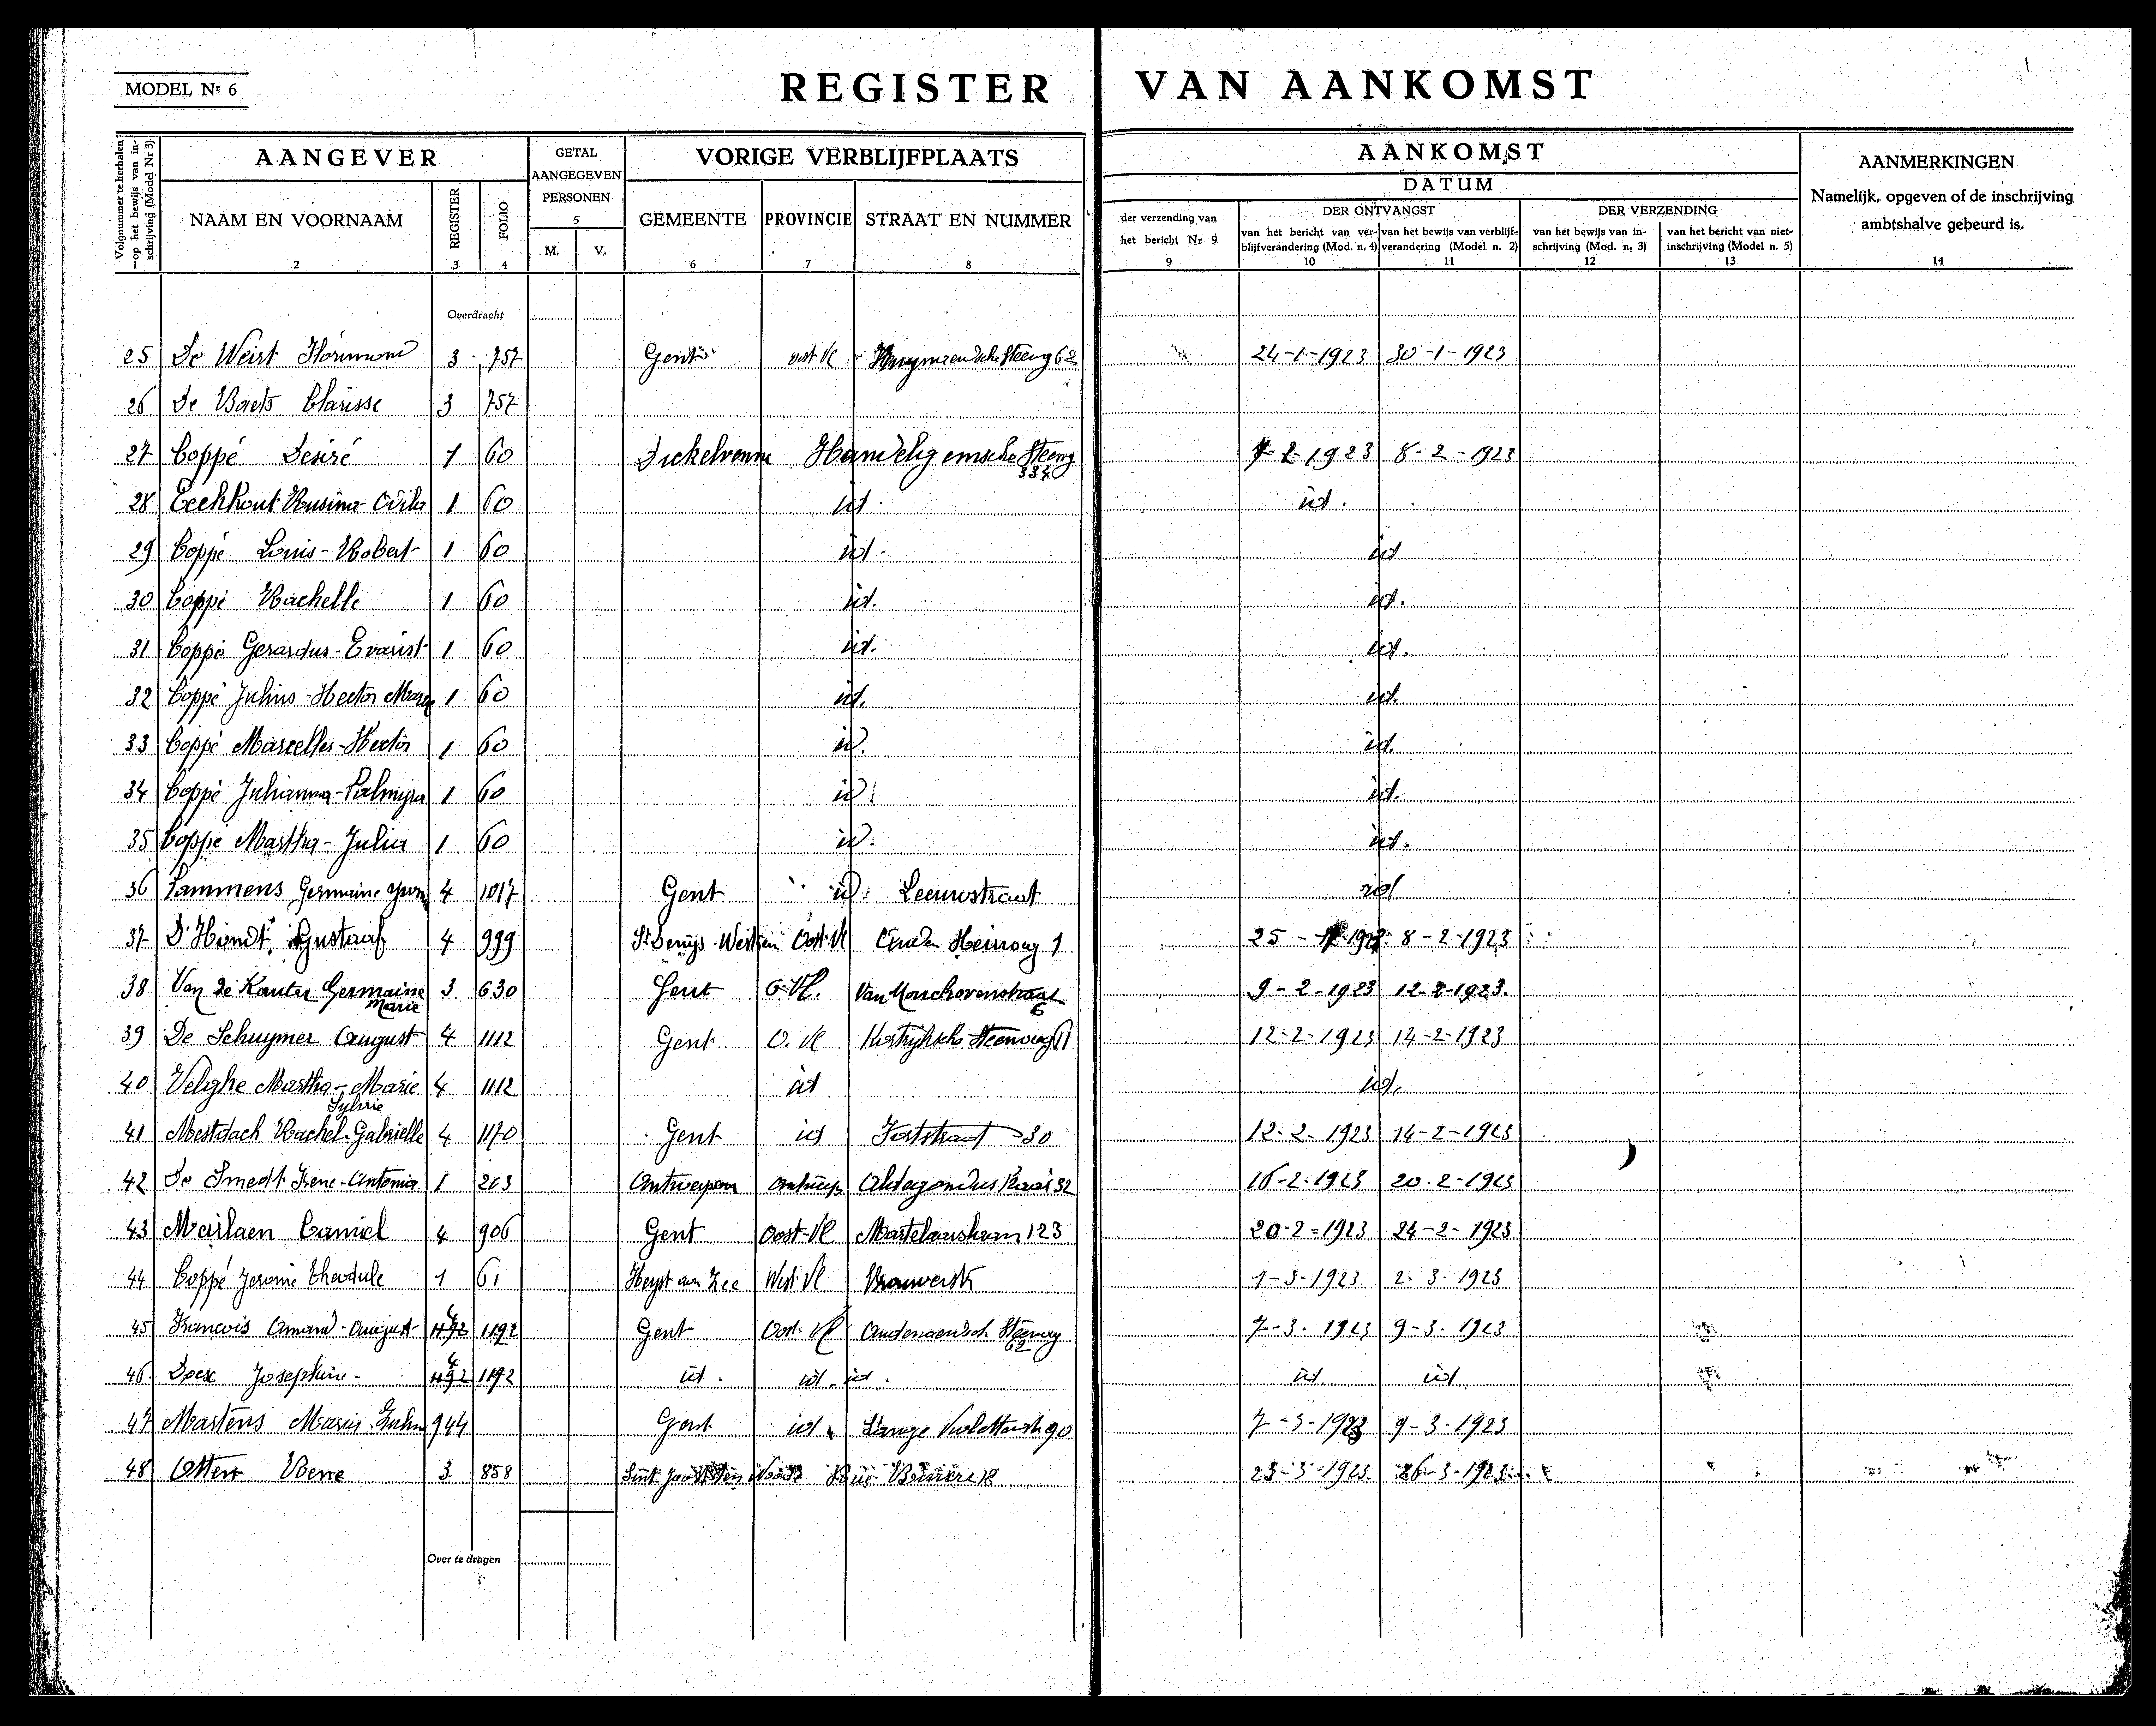 MODEL Nr 6
REGISTER VAN AANKOMST
Volgnummer te herhalen op het bewijs van inschrijving (Model Nr 3)
AANGEVER
GETAL AANGEGEVEN PERSONEN
VORIGE VERBLIJFPLAATS
AANKOMST
AANMERKINGEN
DATUM
Namelijk, opgeven of de inschrijving ambtshalve gebeurd is.
NAAM EN VOORNAAM REGISTER FOLIO 5 M. V. GEMEENTE PROVINCIE STRAAT EN NUMMER
der verzending van het bericht Nr 9
DER ONTVANGST
van het bericht van verblijfverandering (Mod. n. 4) van het bewijs van verblijfverandering (Model n. 2)
DER VERZENDING
van het bewijs van inschrijving (Mod. n. 3) van het bericht van niet-inschrijving (Model n. 5)
1 2 3 4 6 7 8 9 10 11 12 13 14
Overdracht
25 De Weirt 3 757 Gent oost-Vl 62 24-1-1923 30-1-1923
26 De Baets Clarisse 3 757
27 Coppé Desiré 1 60 Dickelvenne Steenw 334 7-2-1923 8-2-1923
28 Eeckhout 1 60 id. id.
29 Coppé Louis-Robert 1 60 id. id
30 Coppé Rachelle 1 60 id. id.
31 Coppé Gerardus-Evarist 1 60 id. id.
32 Coppé Julius-Hector 1 60 id. id.
33 Coppé Marcelles-Hector 1 60 id. id.
34 Coppé Julianna-Palmyra 1 60 id. id.
35 Coppé Martha-Julia 1 60 id. id.
36 Lammens Germaine 4 1017 Gent id. Leeuwstraat id
37 D'Hondt Gustaaf 4 999 St Denijs-Westrem Oost-Vl Heirweg 1 25 8-2-1923
38 Van de Kauter Germaine Marie 3 630 Gent O-Vl. Van Monckhovenstraat 6 9-2-1923 12-2-1923.
39 De Schuymer August 4 1112 Gent O. Vl Kortrijksche Steenweg 12-2-1923 14-2-1923
40 Velghe Martha-Marie Sylvie 4 1112 id id.
41 Mestdach Rachel-Gabrielle 4 1170 Gent id 30 12-2-1923 14-2-1923
42 De Smedt Irene-Antonia 1 203 Antwerpen 32 16-2-1923 20-2-1923
43 Camiel 4 906 Gent Oost-Vl Martelaarslaan 123 20-2-1923 24-2-1923
44 Coppé Jerome Theodule 1 61 Heyst aan Zee West-Vl Brouwerstr 1-3-1923 2-3-1923
45 Francois Amand-August 4 1192 Gent Oost-Vl Steenweg 62 7-3-1923 9-3-1923
46 Josephine 4 1192 id. id. id. id id
47 Martens Maria 944 Gent id Lange Violettestr 90 7-3-1923 9-3-1923
48 3 858 Rue 18 23-3-1923. 26-3-1923
Over te dragen